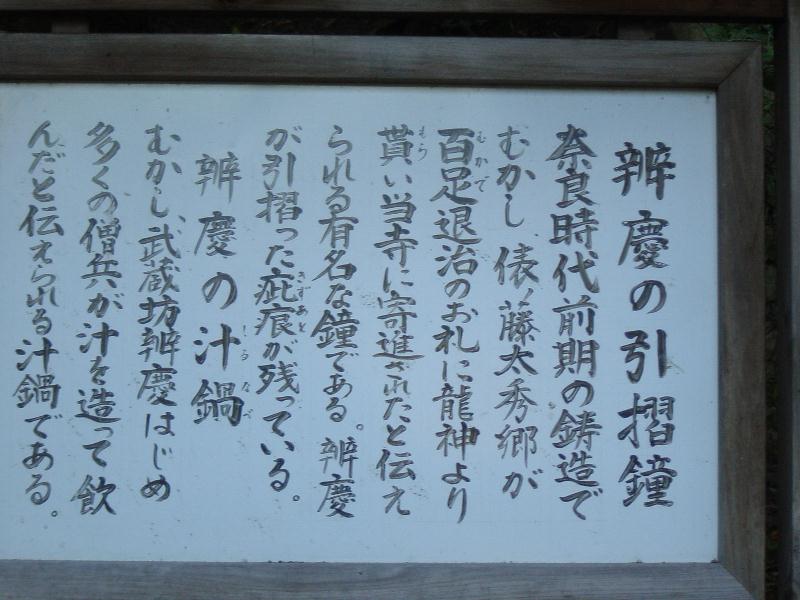 辨慶の引摺鐘
奈良時代前期の鋳造で
むかし、俵ノ藤太秀郷が
百足退治のお礼に龍神より
貰い当寺に寄進されたと伝え
られる有名な鐘である。辨慶
が引摺った疵痕が残っている。
辨慶の汁鍋
むかし、武蔵坊辨慶はじめ
多くの僧兵が汁を造って飲
んだと伝えられる汁鍋である。